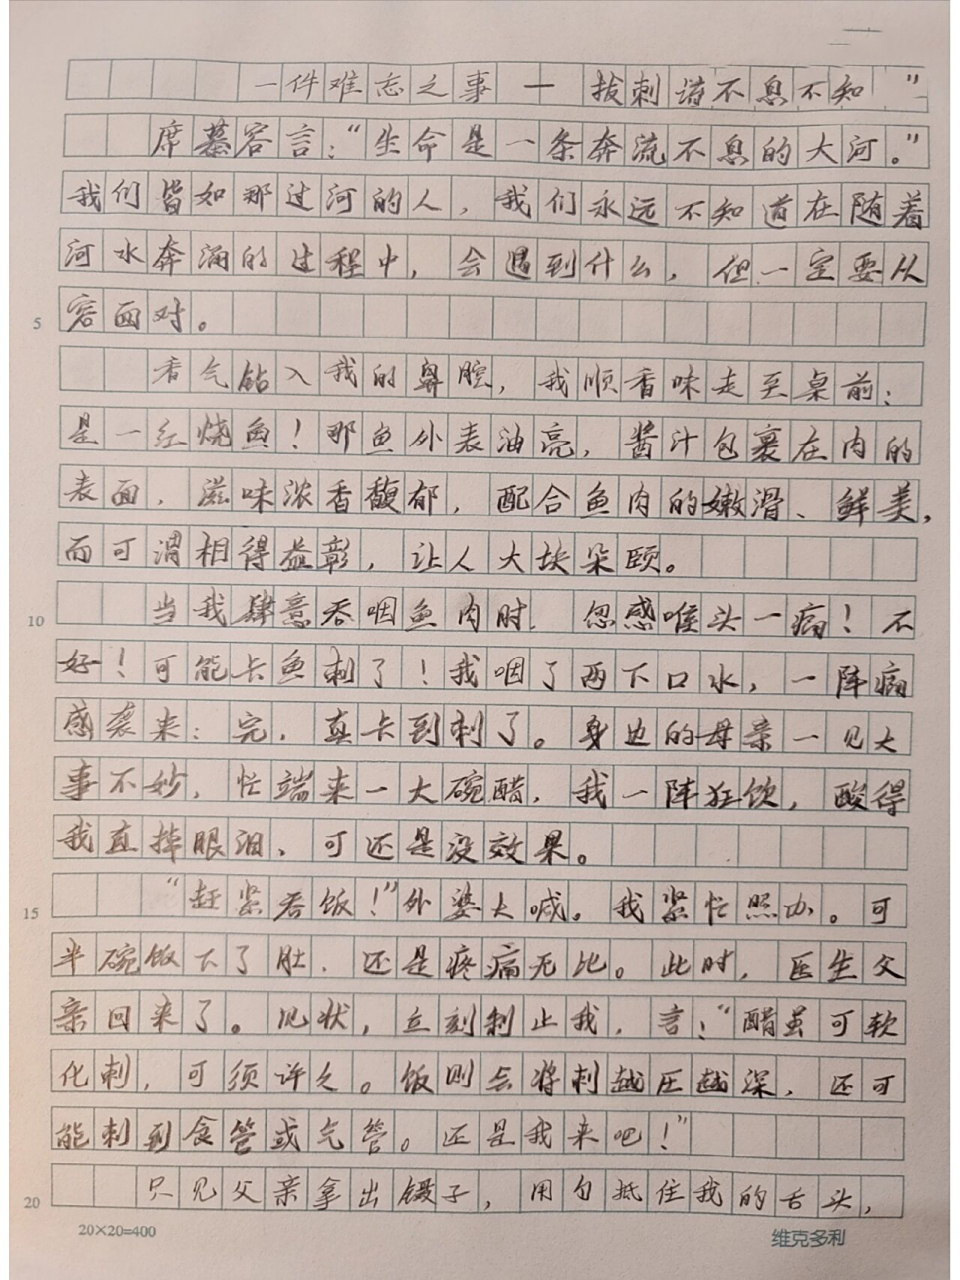 一件难忘之事 — 拔刺 诸不息不知 "
席慕容言:“生命是一条奔流不息的大河。”
我们皆如那过河的人,我们永远不知道在随着
河水奔涌的过程中,会遇到什么,但一定要从
5 容面对。
香气钻入我的鼻腔,我顺香味走至桌前:
是一红烧鱼!那鱼外表油亮,酱汁包裹在肉的
表面,滋味浓香馥郁,配合鱼肉的嫩滑、鲜美,
而可谓相得益彰,让人大块朵颐。
10 当我肆意吞咽鱼肉时,忽感喉头一痛!不
好!可能卡鱼刺了!我咽了两下口水,一阵痛
感袭来:完,真卡到刺了。身边的母亲一见大
事不妙,忙端来一大碗醋,我一阵狂饮,酸得
我直掉眼泪、可还是没效果。
15 “赶紧吞饭!”外婆大喊。我紧忙照办。可
半碗饭下了肚,还是疼痛无比。此时,医生父
亲回来了。见状,立刻制止我,言:“醋虽可软
化刺,可须许久。饭则会将刺越压越深,还可
能刺到食管或气管。还是我来吧!”
20 只见父亲拿出镊子,用勺抵住我的舌头,
20×20=400 维克多利